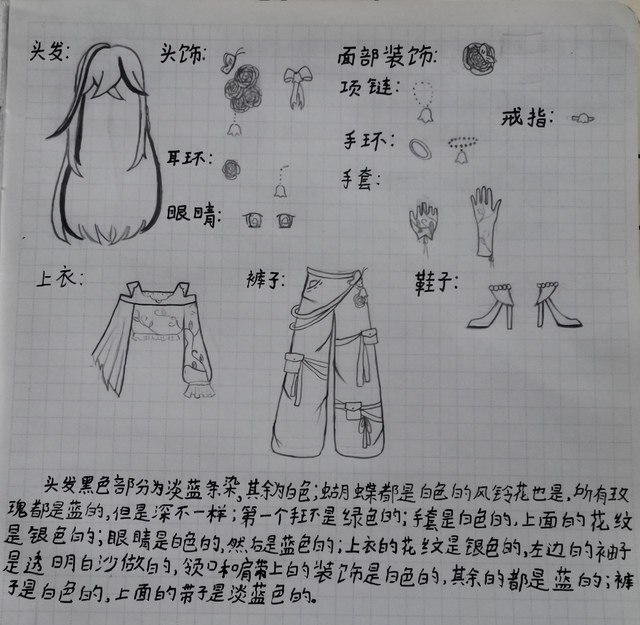 头发： 头饰： 面部装饰：
项链：
戒指：
手环：
耳环：
手套：
眼睛：
上衣： 裤子： 鞋子：
头发黑色部分为淡蓝条染，其余为白色；蝴蝶都是白色的风铃花也是，所有玫
瑰都是蓝的，但是深不一样；第一个手环是绿色的；手套是白色的，上面的花纹
是银色的；眼睛是白色的，然后是蓝色的；上衣的花纹是银色的，左边的袖子
是透明白沙做的，领口和肩带上的装饰是白色的，其余的都是蓝的；裤
子是白色的，上面的带子是淡蓝色的。